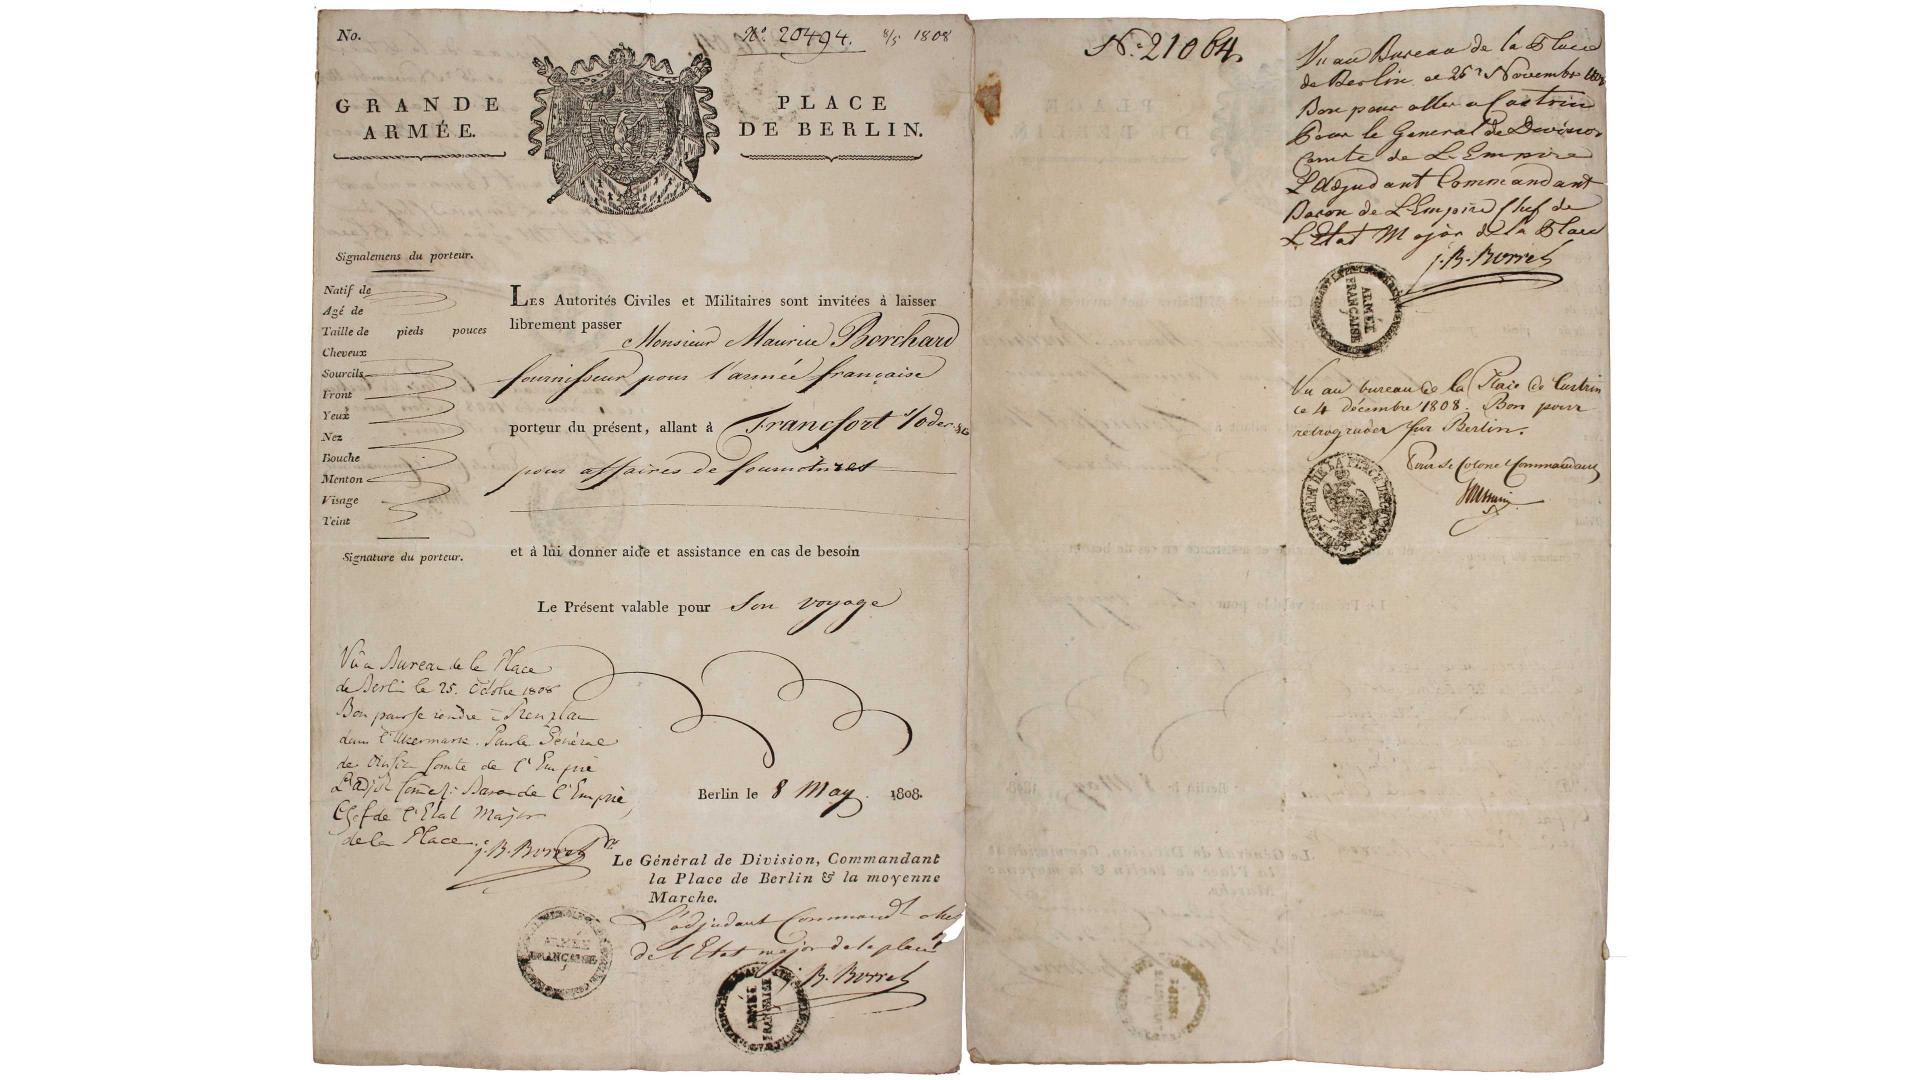 No.
Nº. 20494. 8/5 1808
GRANDE
ARMÉE.
PLACE
DE BERLIN.
Signalemens du porteur.
Natif de
Agé de
Taille de pieds pouces
Cheveux
Sourcils
Front
Yeux
Nez
Bouche
Menton
Visage
Teint
Signature du porteur.
LES Autorités Civiles et Militaires sont invitées à laisser
librement passer Monsieur Maurice Borchard
fournisseur pour l'armée française
porteur du présent, allant à Francfort s/Oder
pour affaires de fournitures
et à lui donner aide et assistance en cas de besoin
Le Présent valable pour son voyage
Vu au Bureau de la Place
de Berlin le 25. Octobre 1808
Bon pour se rendre à Prenzlau
dans l'Ukermark. Pour le Général
de Division Comte de l'Empire
L'adjt Comdt: Baron de l'Empire,
Chef de l'Etat Major
de la Place. J. B. Borrel
Berlin le 8 May 1808.
Le Général de Division, Commandant
la Place de Berlin & la moyenne
Marche.
L'adjudant Commandt chef
de l'Etat major de la place
J. B. Borrel
ARMÉE
FRANÇAISE
ARMÉE
FRANÇAISE
Nº. 21064.
Vu au Bureau de la Place
de Berlin ce 26 Novembre 1808
Bon pour aller a Custrin
Pour le General de Division
Comte de L'Empire
L'Adjudant Commandant
Baron de L'Empire Chef de
L'Etat Major de la Place
J. B. Borrel
ARMÉE
FRANÇAISE
Vu au bureau de la Place de Custrin
ce 4 décembre 1808. Bon pour
retrograder sur Berlin.
Pour le Colonel Commandant